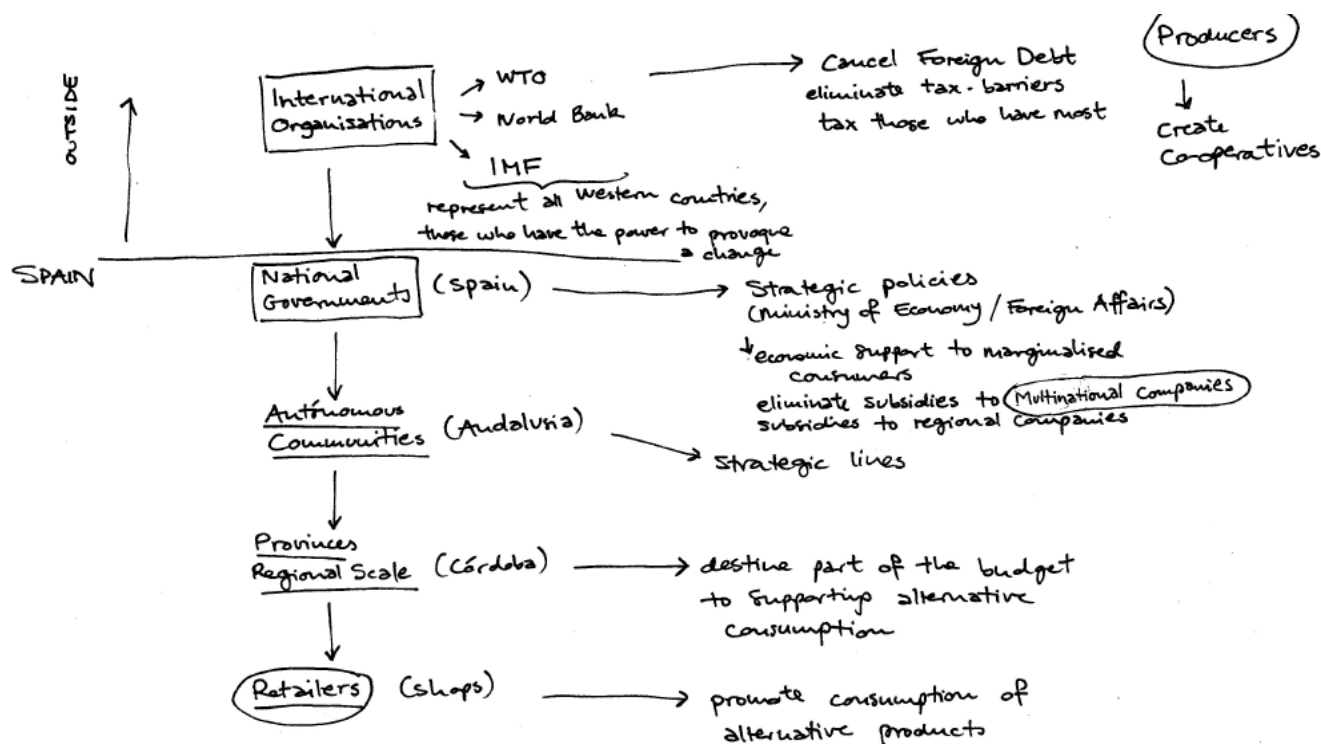 OUTSIDE
International
Organisations
WTO
World Bank
IMF
represent all Western countries,
those who have the power to provoque
a change
Cancel Foreign Debt
eliminate tax-barriers
tax those who have most
Producers
Create
Co-operatives
SPAIN
National
Governments
(Spain)
Strategic policies
(Ministry of Economy / Foreign Affairs)
economic support to marginalised
consumers
eliminate subsidies to Multinational Companies
subsidies to regional companies
Autónomous
Communities
(Andalusia)
Strategic lines
Provinces
Regional Scale
(Córdoba)
destine part of the budget
to supporting alternative
consumption
Retailers
(shops)
promote consumption of
alternative products